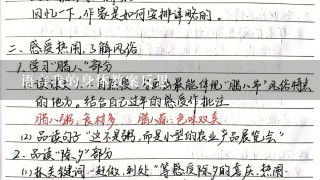 回忆一下,作家是如何安排详略的。
二、感受热闹,了解风俗
1.学习"腊八"部分
最能体现"腊八节"风俗特点
语文我的身体教案反思
的地方。结合自己过年的感受作批注
腊八粥:食材多 腊八蒜:色味双美
(2)品读句子"这不是粥,而是小型的农业产品展览会"
2.品读"除夕"部分
(1)抓关键词"赶做、到处"等感慨除夕的喜庆、热闹